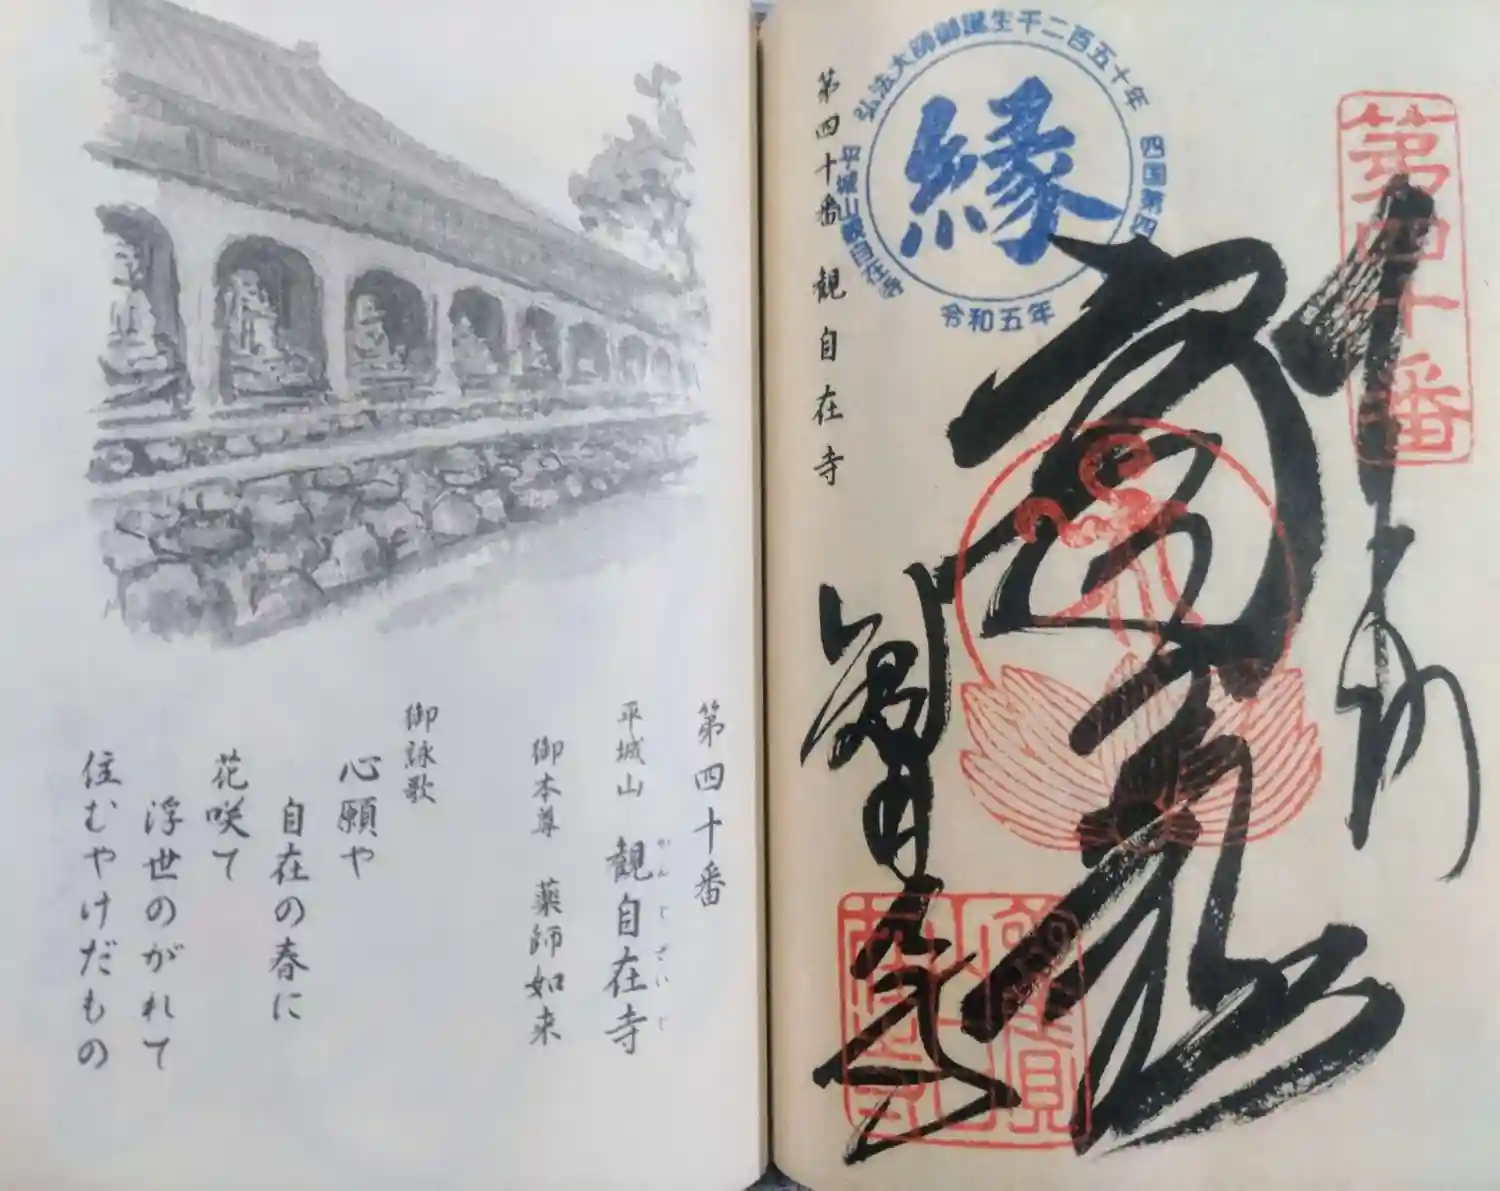 第四十番
平城山 観自在寺
かんじざいじ
御本尊 薬師如来
御詠歌
心願や
自在の春に
花咲て
浮世のがれて
住むやけだもの
第四十番 観自在寺
弘法大師御誕生千二百五十年
四国第四
平城山観自在寺
縁
令和五年
第四十番
奉納